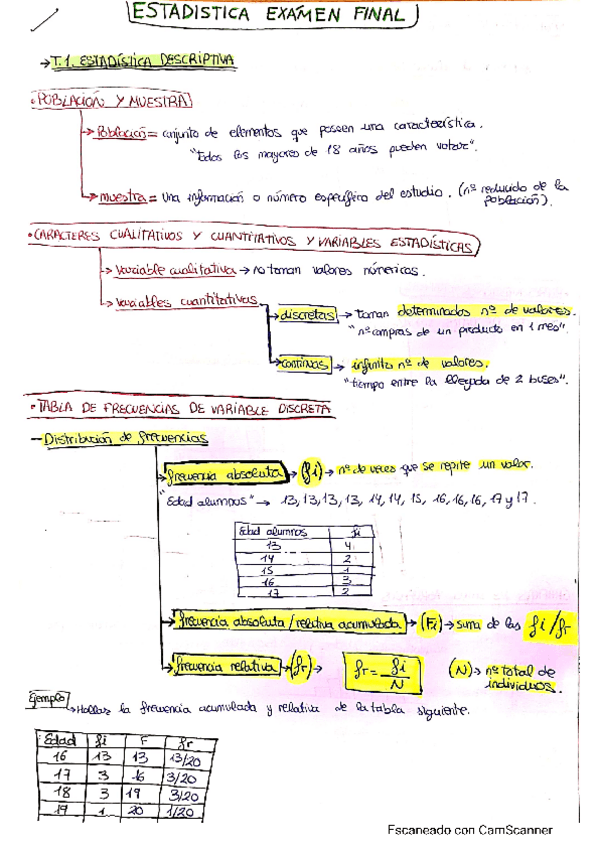 ESTADISTICA EXÁMEN FINAL
→T.1. ESTADÍSTICA DESCRIPTIVA
• POBLACIÓN Y MUESTRA
Población = conjunto de elementos que poseen una característica.
"Todos los mayores de 18 años pueden votar".
muestra = una información o número específico del estudio. (nº reducido de la población).
• CARACTERES CUALITATIVOS Y CUANTITATIVOS Y VARIABLES ESTADÍSTICAS
Variable cualitativa → no toman valores númericos.
Variables cuantitativas
discretas → toman determinados nº de valores.
"nº compras de un producto en 1 mes".
continuas → infinito nº de valores.
"tiempo entre la llegada de 2 buses".
• TABLA DE FRECUENCIAS DE VARIABLE DISCRETA
- Distribución de frecuencias
frecuencia absoluta → (fi) → nº de veces que se repite un valor.
"Edad alumnos" → 13, 13, 13, 13, 14, 14, 15, 16, 16, 16, 17 y 17.
Edad alumnos fi
13 4
14 2
15 1
16 3
17 2
frecuencia absoluta / relativa acumulada → (Fi) → suma de los fi/fr
frecuencia relativa → (fr) → fr = fi/N (N) → nº total de individuos.
Ejemplo → Hallar la frecuencia acumulada y relativa de la tabla siguiente.
Edad fi F fr
16 13 13 13/20
17 3 16 3/20
18 3 19 3/20
19 1 20 1/20
Escaneado con CamScanner